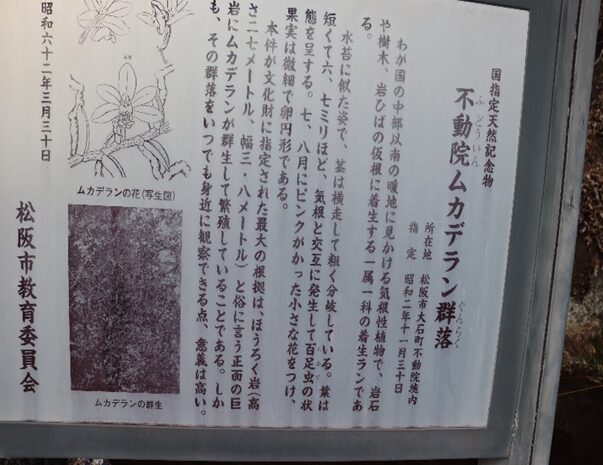 国指定天然記念物
不動院ムカデラン群落
ふどういん
ぐんらく
所在地 松阪市大石町不動院境内
指定 昭和二年十一月三十日
わが国の中部以南の暖地に見かける気根性植物で、岩石
や樹木、岩ひばの仮根に着生する一属一科の着生ランであ
る。
水苔に似た姿で、茎は横走して粗く分岐している。葉は
短くて六、七ミリほど、気根と交互に発生して百足虫の状
態を呈する。七、八月にピンクがかった小さな花をつけ、
果実は微細で卵円形である。
本件が文化財に指定された最大の根拠は、ほうろく岩(高
さ二七メートル、幅三・八メートル)と俗に言う正面の巨
岩にムカデランが群生して繁殖していることである。しか
も、その群落をいつでも身近に観察できる点、意義は高い。
ムカデランの花(写生図)
ムカデランの群生
昭和六十二年三月三十日
松阪市教育委員会